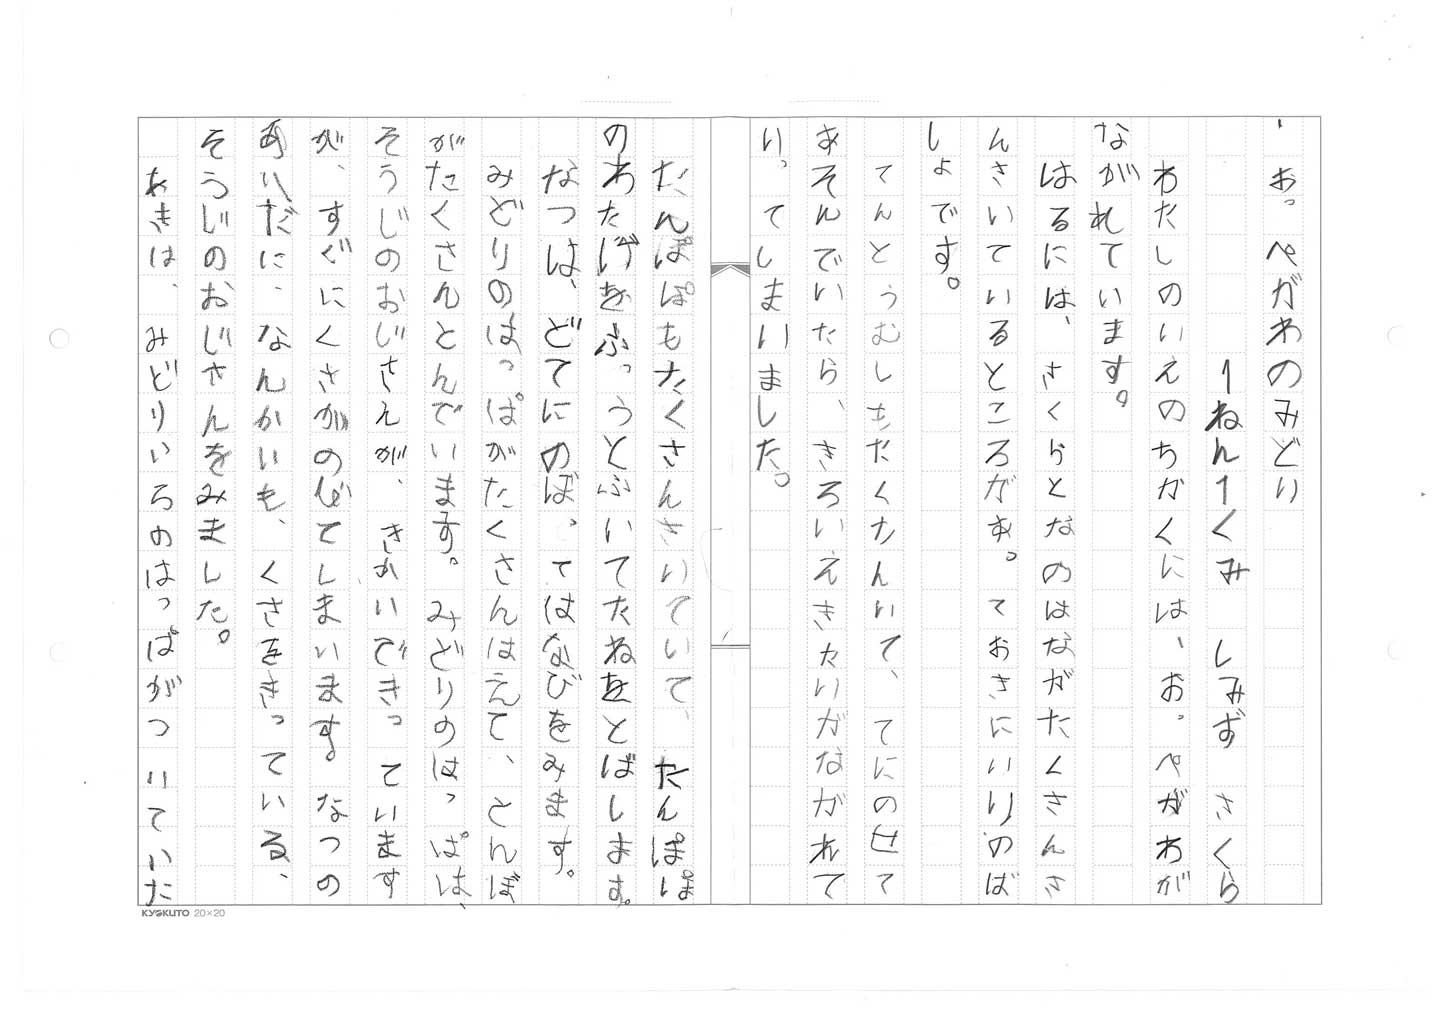 おっぺがわのみどり
1ねん1くみ しみず さくら
わたしのいえのちかくには、おっぺがわが
ながれています。
はるには、さくらとなのはながたくさんさ
んさいているところがあって おきにいりのば
しょです。
てんとうむしもたくたんいて、てにのせて
あそんでいたら、きろいえきたいがながれて
いってしまいました。
たんぽぽもたくさんさいていて、たんぽぽ
のわたげをふっうとふいてたねをとばします。
なつは、どてにのぼってはなびをみます。
みどりのはっぱがたくさんはえて、とんぼ
がたくさんとんでいます。みどりのはっぱは、
そうじのおじさんが、きかいできっています
が、すぐにくさがのびてしまいます。なつの
あいだに、なんかいも、くさをきっている、
そうじのおじさんをみました。
あきは、みどりいろのはっぱがついていた
KYOKUTO 20×20